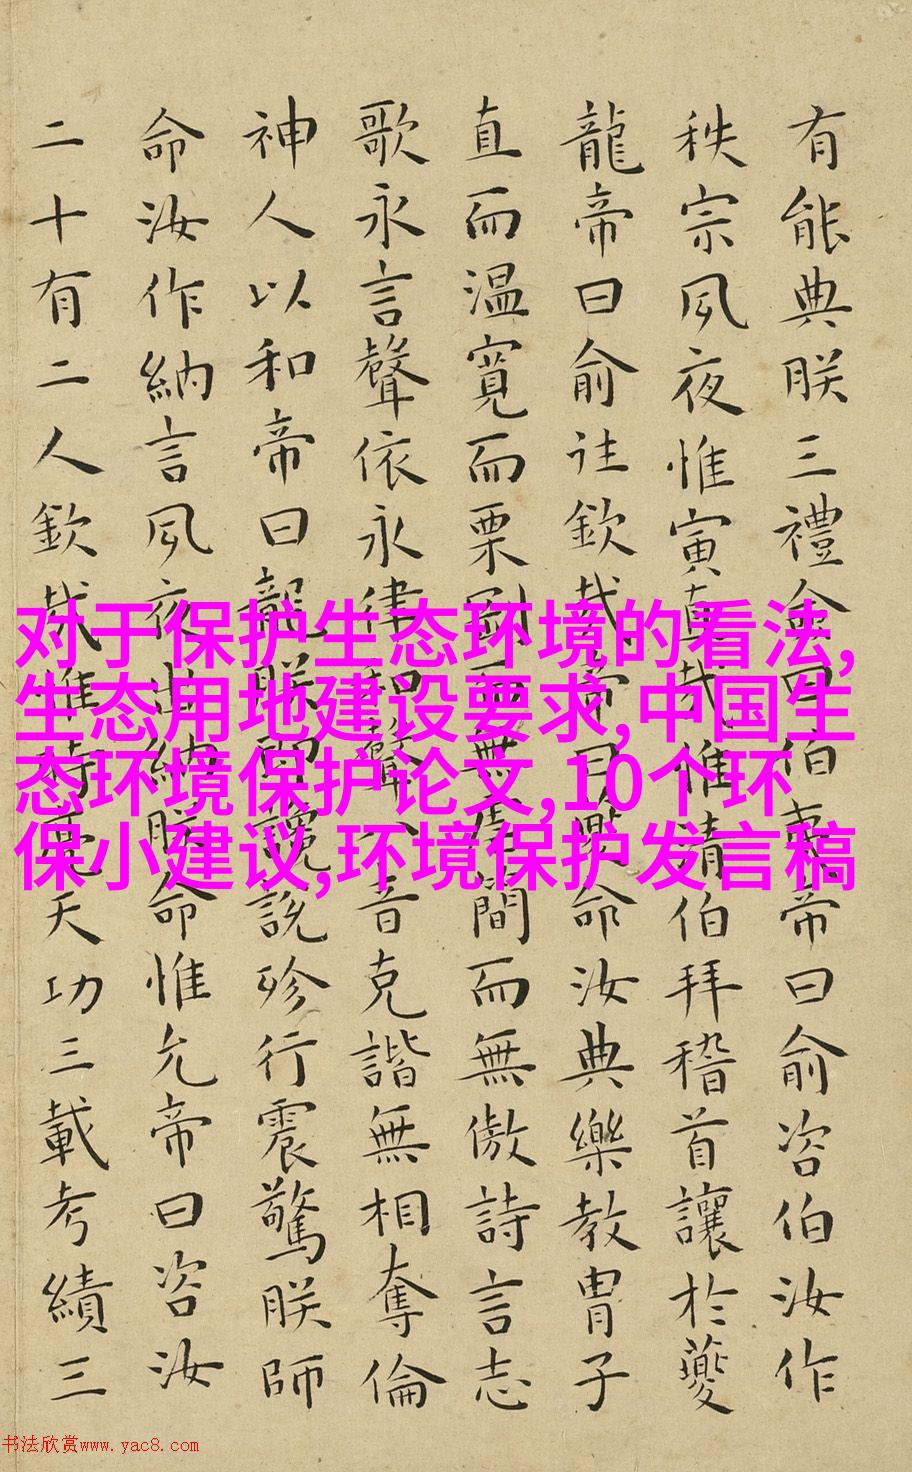 有能典朕三禮僉曰伯夷帝曰俞咨伯汝作
秩宗夙夜惟寅直哉惟清伯拜稽首讓於夔
龍帝曰俞往欽哉帝曰夔命汝典樂教胄子
直而温寬而栗剛而無虐簡而無傲詩言志
歌永言聲依永律和聲八音克諧無相奪倫
神人以和帝曰龍朕堲讒說殄行震驚朕師
命汝作納言夙夜出納朕命惟允帝曰咨汝
二十有二人欽哉惟時亮天功三載考績三
对于保护生态环境的看法,
生态用地建设要求,中国生
态环境保护论文,10个环
保小建议,环境保护发言稿
书法欣赏www.yac8.com